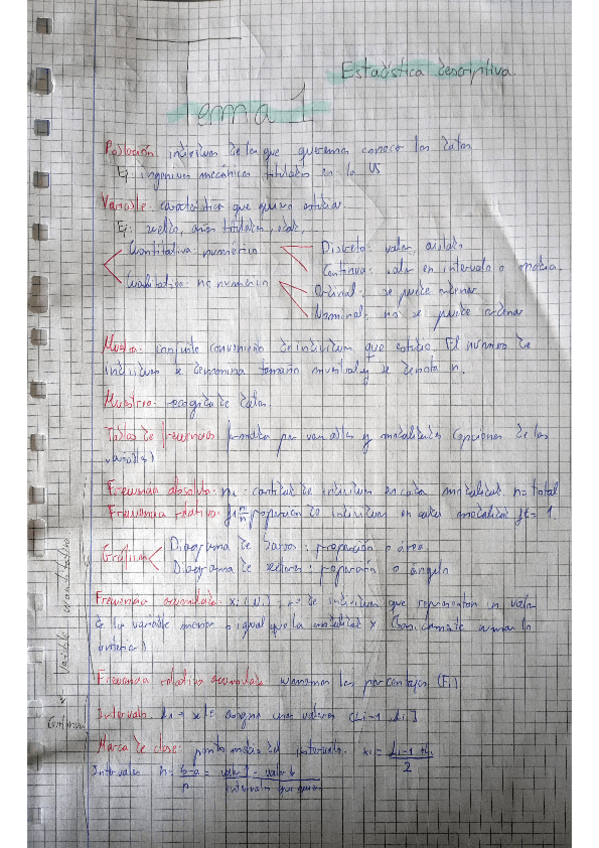 Estadística descriptiva
Tema 1
Población: individuos de los que queremos conocer los datos
Ej: ingenieros mecánicos titulados en la US
Variable: característica que quiero estudiar.
Ej: sueldo, años titulados, edad,...
Cuantitativa: numérico
Discreta: valor, aislado
Continua: valor en intervalo o
Cualitativa: no numérico
Ordinal: se puede ordenar
Nominal: no se puede ordenar
Muestra: conjunto de individuos que estudio. El número de
individuos se denomina tamaño muestral y se denota n.
Muestreo: recogida de datos.
Tablas de frecuencias formadas por variables y modalidades (opciones de las
variables)
Frecuencia absoluta: ni: cantidad de individuos en cada modalidad n=total
Frecuencia relativa: proporción de individuos en cada modalidad = 1.
Gráficas
Diagrama de barras: proporción o área
Diagrama de sectores: proporción o ángulo
Frecuencia acumulada: nº de individuos que representan un valor
de la variable menor o igual que la modalidad x
anterior)
Frecuencia relativa acumulada: sumamos los porcentajes (Fi)
Intervalo. Li-1 unos valores (Li-1, Li]
Marca de clase: punto medio del intervalo. xi = Li-1 + Li / 2
Intervalos h = b-a / n =
Variable cuantitativa
Continua